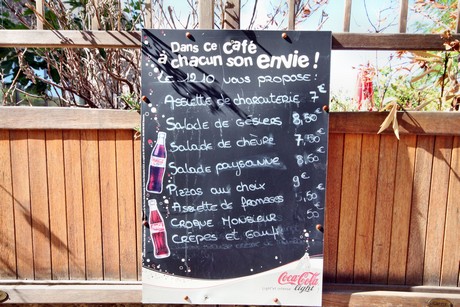 Dans ce café
à chacun son envie !
Le 1210 vous propose :
Assiette de charcuterie 7€
Salade de Gésiers 8,50€
Salade de chèvre 7,50€
Salade paysanne 8,50€
Pizzas au choix 9€
Assiette de fromages
Croque Monsieur
Crêpes et Gaufr
Coca-Cola
light